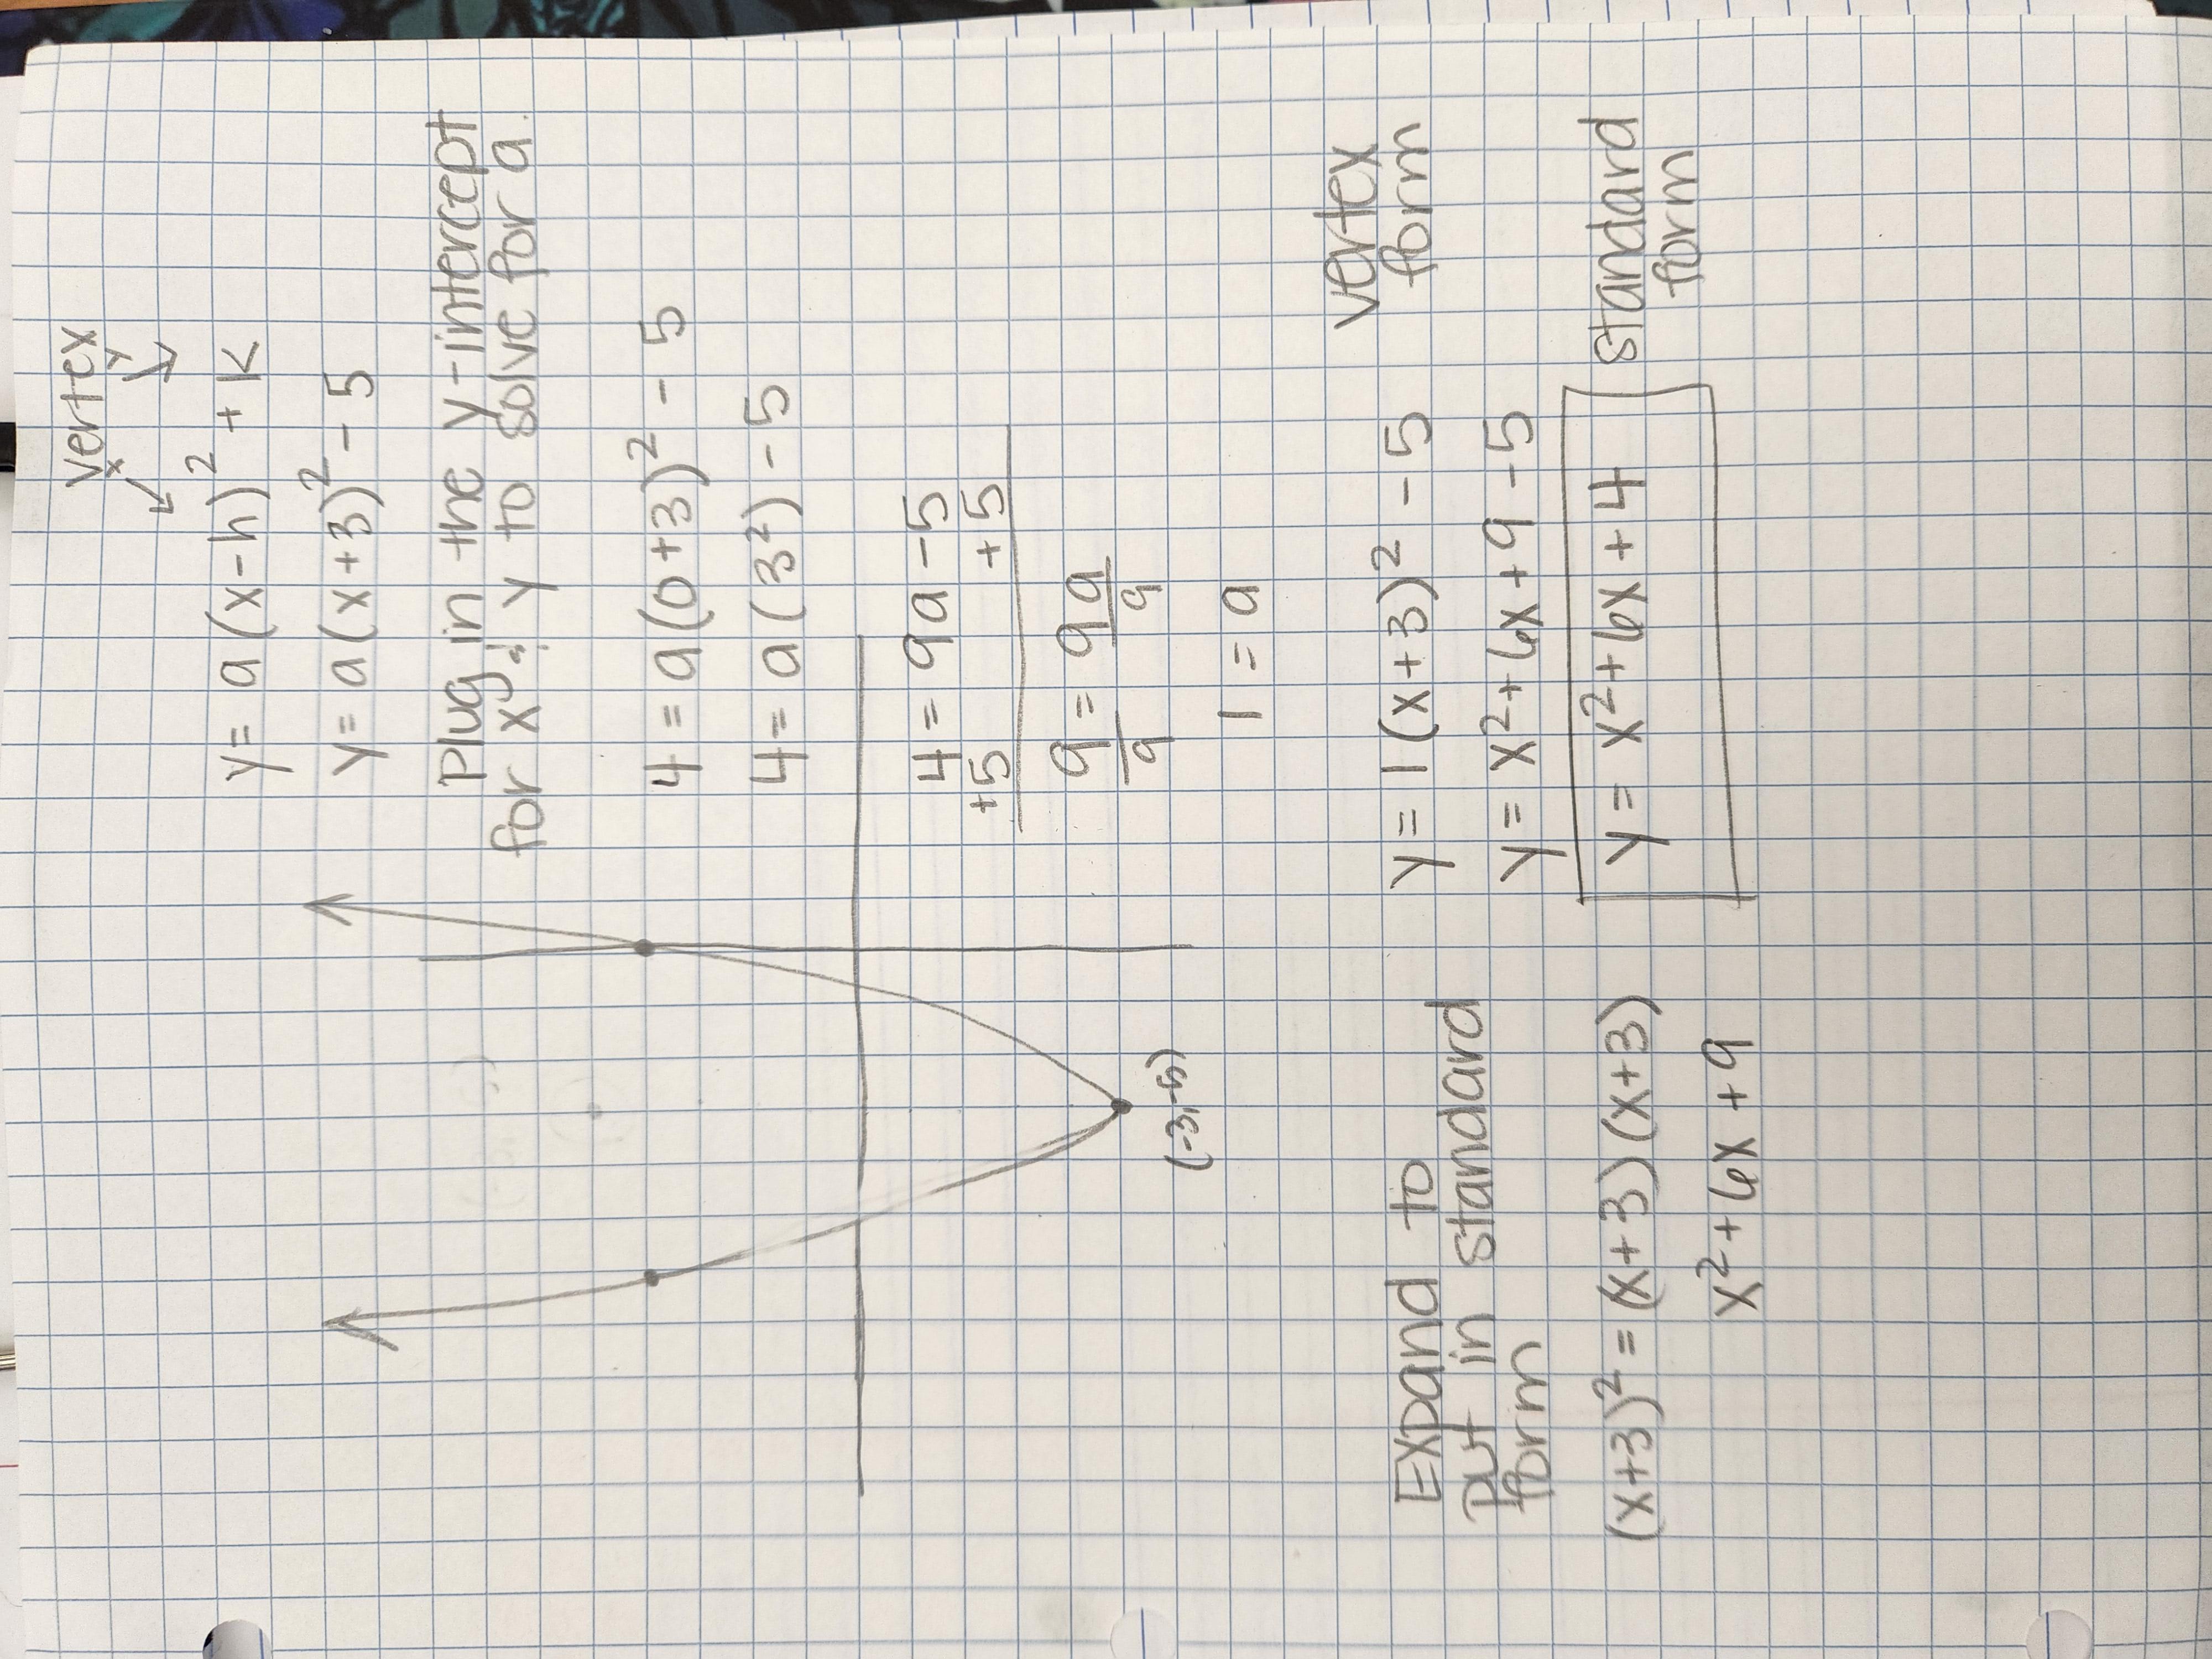 vertex
x y
y = a(x-h)² + k
y = a(x+3)² - 5
Plug in the y-intercept
for x & y to solve for a.
4 = a(0+3)² - 5
4 = a(3²) - 5
4 = 9a - 5
+5 +5
9 = 9a
9 9
1 = a
(-3,-5)
Expand to
put in standard
form
(x+3)² = (x+3)(x+3)
x² + 6x + 9
y = 1(x+3)² - 5 vertex
form
y = x² + 6x + 9 - 5
y = x² + 6x + 4 standard
form